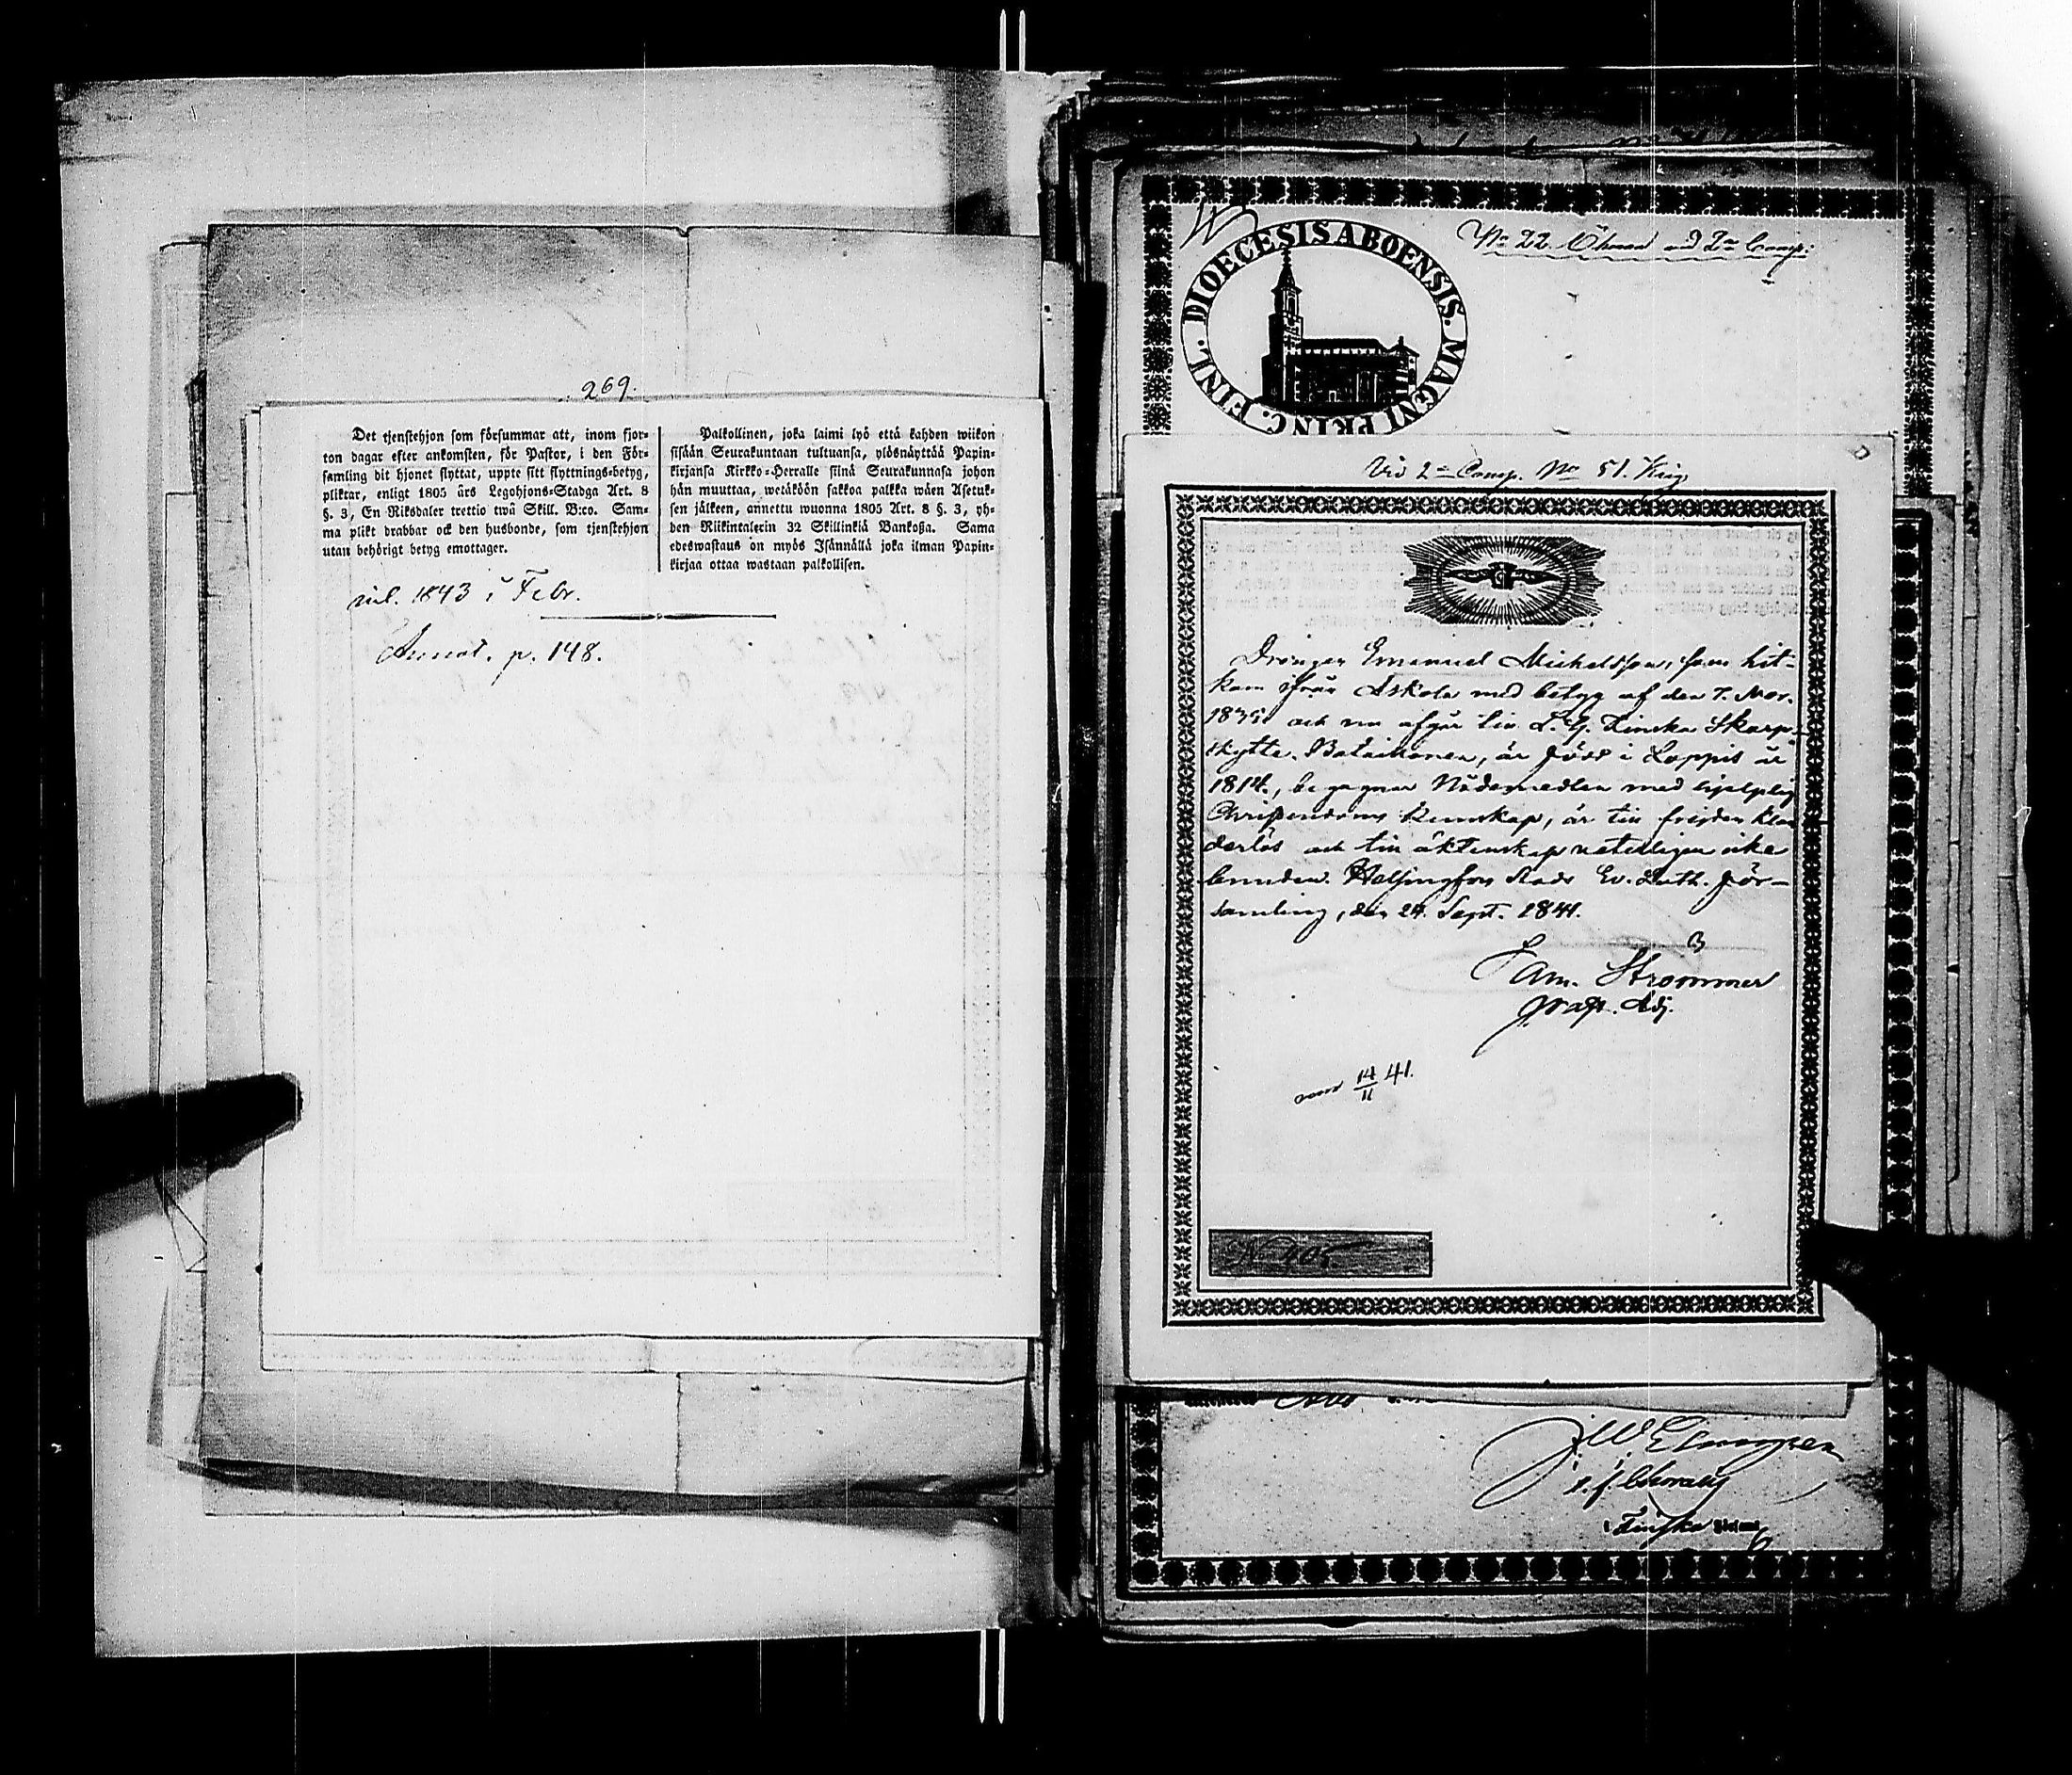 269.
Det tjenstehjon som försummar att, inom fjor-
ton dagar efter ankomsten, för Pastor, i den För-
samling dit hjonet flyttat, uppte sitt flyttnings-betyg,
pliktar, enligt 1805 års Legohjons-Stadga Art. 8
§. 3, En Riksdaler trettio twå Skill. B:co. Sam-
ma plikt drabbar ock den husbonde, som tjenstehjon
utan behörigt betyg emottager.
Palkollinen, joka laimi lyö että kahden wiikon
sisään Seurakuntaan tultuansa, ylösnäyttää Papin-
kirjansa Kirkko-Herralle siinä Seurakunnasa johon
hän muuttaa, wetäköön sakkoa palkka wäen Asetuk-
sen jälkeen, annettu wuonna 1805 Art. 8 §. 3, yh-
den Riikintalerin 32 Skillinkiä Bankoßa. Sama
edeswastaus on myös Isännällä joka ilman Papin-
kirjaa ottaa wastaan palkollisen.
inl. 1843 i Febr.
Annot. p. 148.
No 22 Öhman vid 2ra Comp:
DIOECESIS ABOENSIS. MAGNI PRINC. FINL.
Vid 2a Comp. No 51. Krig
Drängen Emanuel Michelsson, som hit-
kom ifrån Askola med betyg af den 7. Nov.
1835 och nu afgår till L. G. Finska Skarp-
skytte-Bataillonen, är född i Loppis år
1814, begagnar Nådemedlen med hjelplig
Christendoms kunskap, är till frejden kla
derlös och till äktenskap veterligen icke
bunden. Helsingfors Stads Ev. Luth. För-
samling, den 24. Sept. 1841.
Sam. Strömmer
Past. Adj.
14/11 41.
No 405.
Åbo
Finska